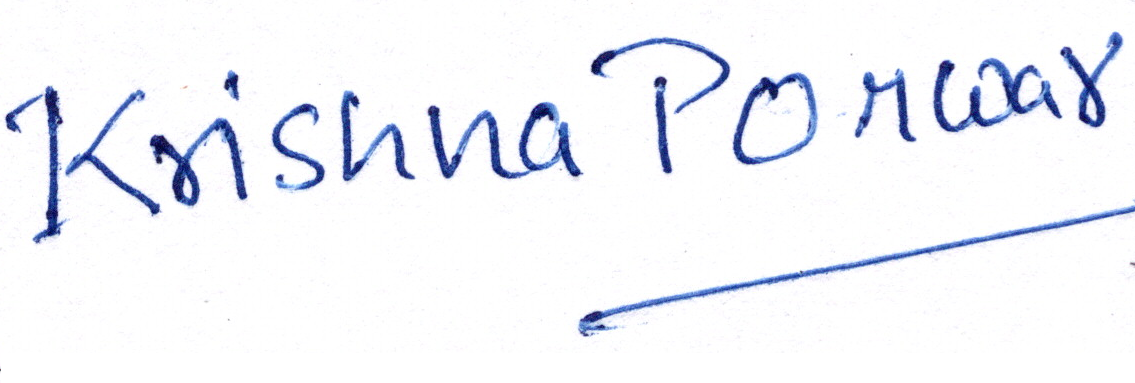 Krishna Porwar